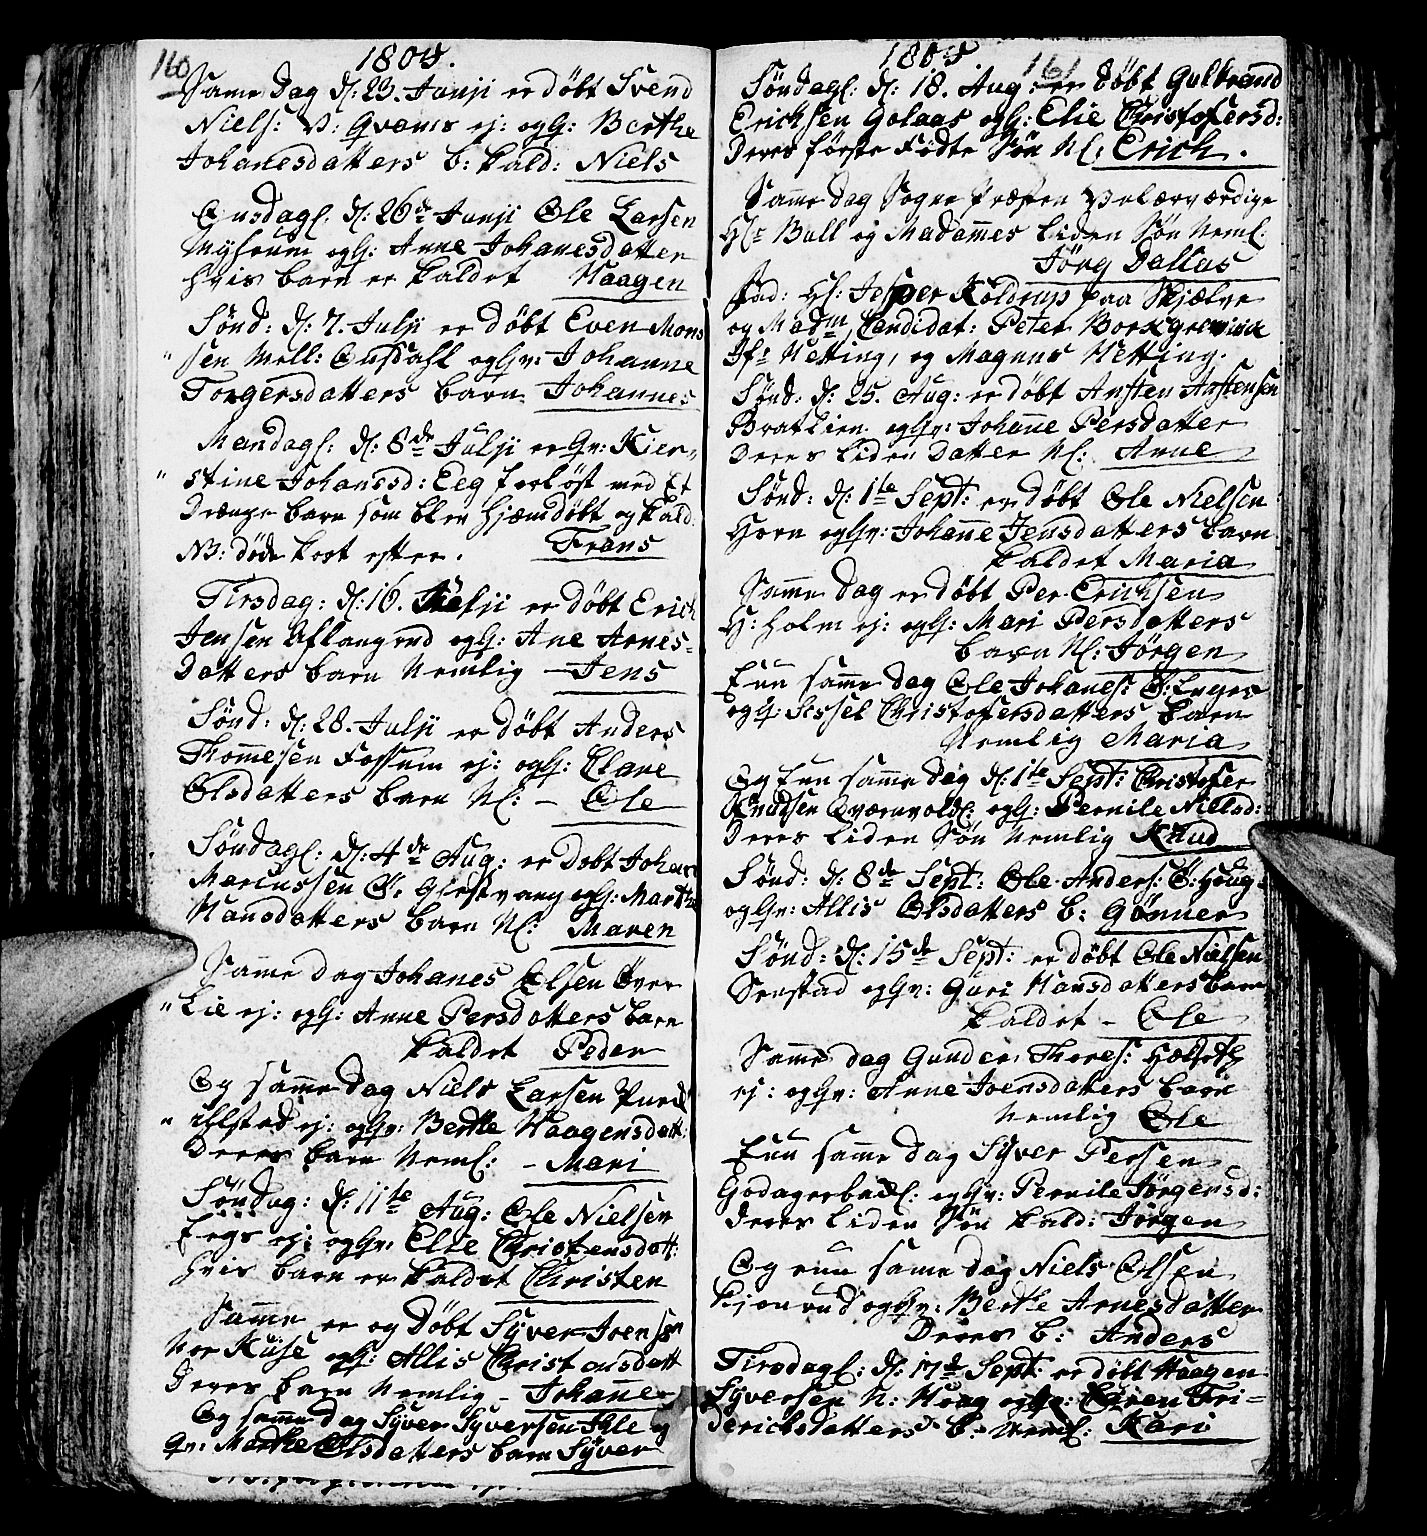 160
1805.
Same Dag d: 23. Junji er døbt Svend
Niels: V: Qvams ej: ogH: Berthe
Johanesdatters b: kald: Niels
Onsdagl. d: 26de Junji Ole Larsen
ogH: Anne Johanesdatter
hvis barn er kaldet Haagen
Sønd: d: 7. Julji er døbt Even Mons
sen Mell: ogHr: Johanne
Torgersdatters barn Johannes
Mandagl: d: 8de Julji er Hr: Kier-
stine Johanesd: Eeg forløst med Et
Drænge barn som blev hjæmdøbt og kald.
NB: døde kort efter. Frans
Tirsdag: d: 16. Julji er døbt Erich
Jensen ogH: Ane Arnes-
Datters barn Nemlig – Jens
Sønd: d: 28. Julji er døbt Anders
Thommesen Fossum ej: ogH: Clare
Olsdatters barn Nl: – Ole
Søndagl: d: 4de Aug: er Døbt Johan
Marcussen ogH: Marthe
Hansdatters barn Nl: Maren
Samme dag Johanes Olsen Över
" Lie ej: ogH: Anne Persdatters barn
kaldet Peder
Og samme Dag Niels Larsen
" ej: ogHr: Berthe Haagensdatt:
Deres barn Neml: – Mari
Søndag: d: 11te Aug: Ole Nielsen
Eegs ej: ogHr. Else Christensdatt:
hvis barn er kaldet Christen
Samme er og Døbt Syver Iversen
ogH: Allis Christensdatt
Deres barn Nemlig – Johanne
Og samme dag Syver Syversen Ihle og
Hr: Marthe Olsdatters barn Syver
1805.
161
Søndagl: d: 18. Aug: er døbt Gulbrand
Erichsen Golaas ogH: Elie Christofersd:
Deres første Fødte Søn Nl: Erich.
Samme dag Sogne Præsten Velærværdige
Hr: Bull og Madammes liden Søn Neml:
Jörg Dallas
Fad: Hr: Jesper Koldrup paa Skjælve
og Madm, Candidat: Peter Borchgrevink
Jfr Netting, og Magnus Netting.
Sønd: d: 25. Aug: er døbt Austen Austensen
Bratlien ogHr: Johanne Persdatter
Deres liden Datter Nl: Anne
Sønd: d: 1te Sept: er døbt Ole Nielsen
Horn ogHr: Johanne Jensdatters barn
kaldet Maria
Samme Dag er døbt Per Erichsen
H: holm ej: ogH: Mari Persdatters
barn Nl: Jørgen
Euu samme dag Ole Johanes:
ogH: Sissel Christofersdatters barn
Nemlig Maria
Og Euu samme dag d: 1te Sept: Christofer
Knudsen Qværnvold: ogH: Pernile Nielsd:
Deres liden Søn Nemlig Knud
Sønd: d: 8de Sept: Ole Anders: Ø: Houg
ogHr: Allis Olsdatters b: Gönner
Sønd: d: 15de Sept: er døbt Ole Nielsen
ogHr: Guri Hansdatters barn
kaldet – Ole
Samme dag Gunder Thores:
ej: ogHr: Anne Iversdatters barn
Nemlig Ole
Euu samme dag Syver Persen
Godagerbadl: ogHr: Pernile Jørgensd:
Deres liden Søn kald: Jørgen
Og euu samme dag Niels Olsen
ogHr: Berthe Arnesdatter
Deres b: Anders
Tirsdagl: d: 17de Sept: er døbt Haagen
Syversen ogHr: Karen Fri-
derichsdatters b: Neml: Kari